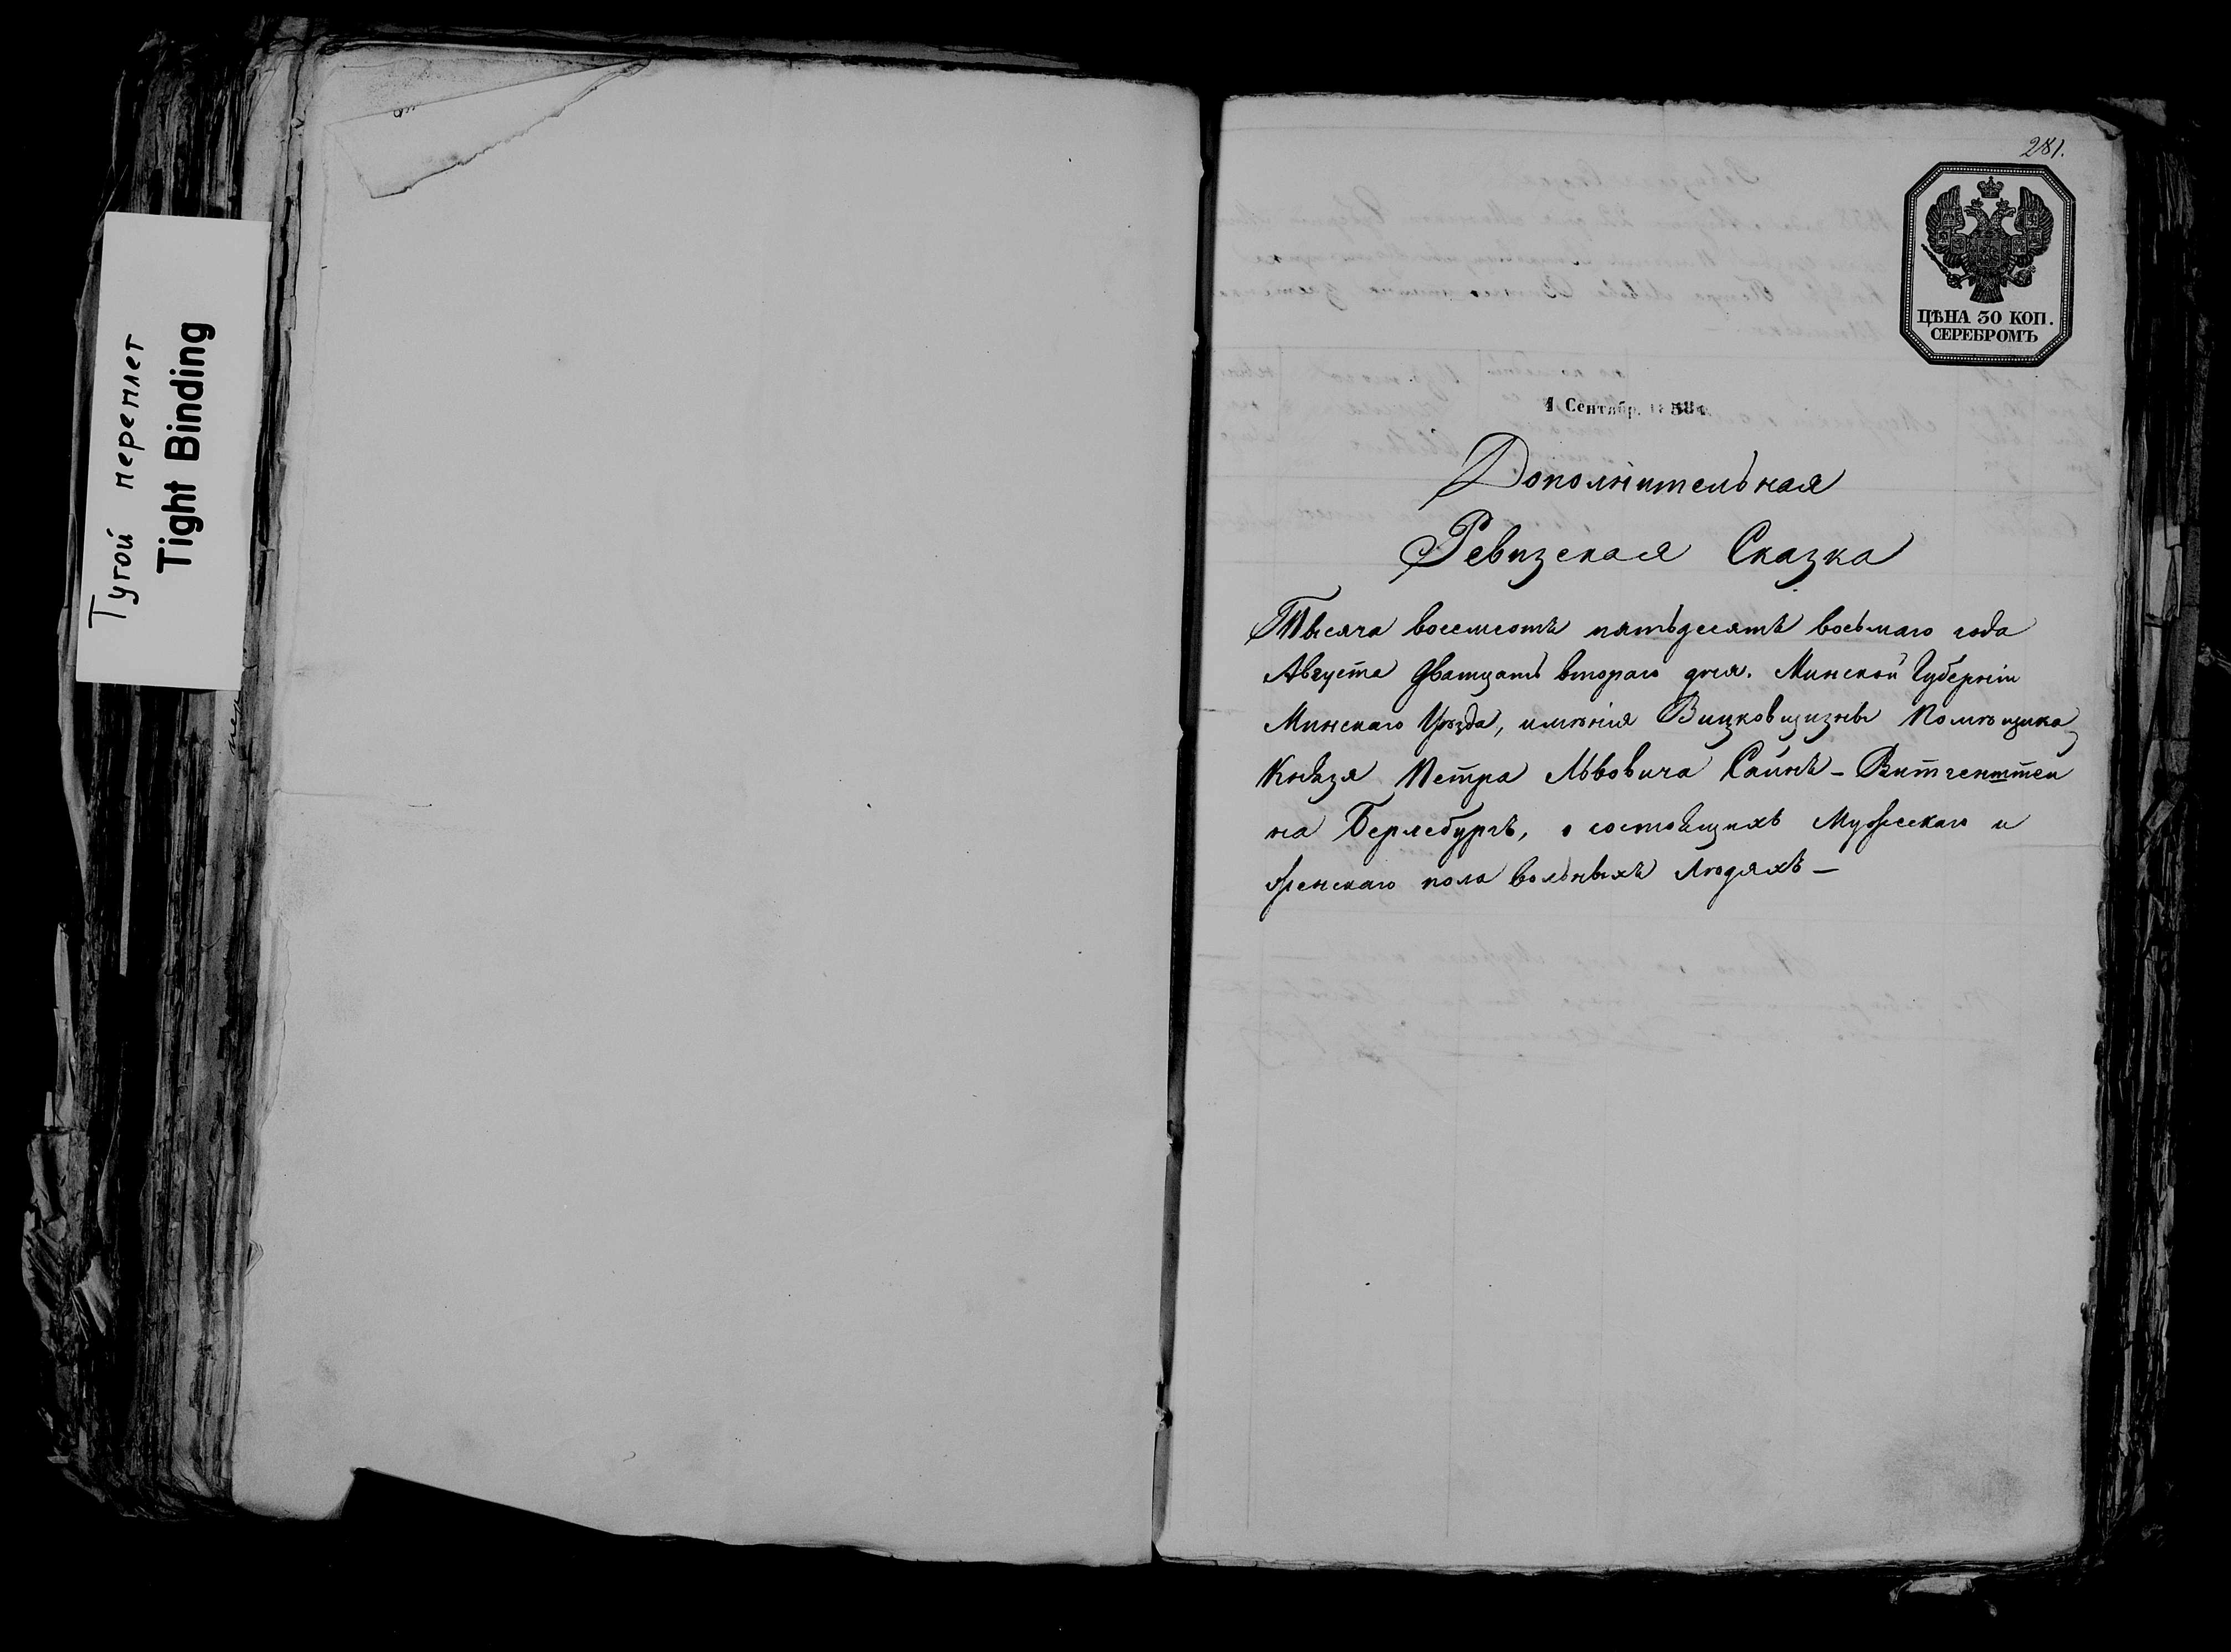 Тугой переплет
Tight Binding
281.
ЦѢНА 30 КОП.
СЕРЕБРОМЪ
1 Сентябр. 1858 г.
Дополнительная
Ревизская Сказка
Тысяча восемсотъ пятьдесятъ восьмаго года
Августа дватцать втораго дня. Минской Губерніи
Минскаго Уѣзда, имѣнія Вицковщизны Помѣщика
Князя Петра Львовича Сайнъ-Витгенштеи
на Берлебургъ, о состоящихъ Мужескаго и
женскаго пола вольныхъ людяхъ —